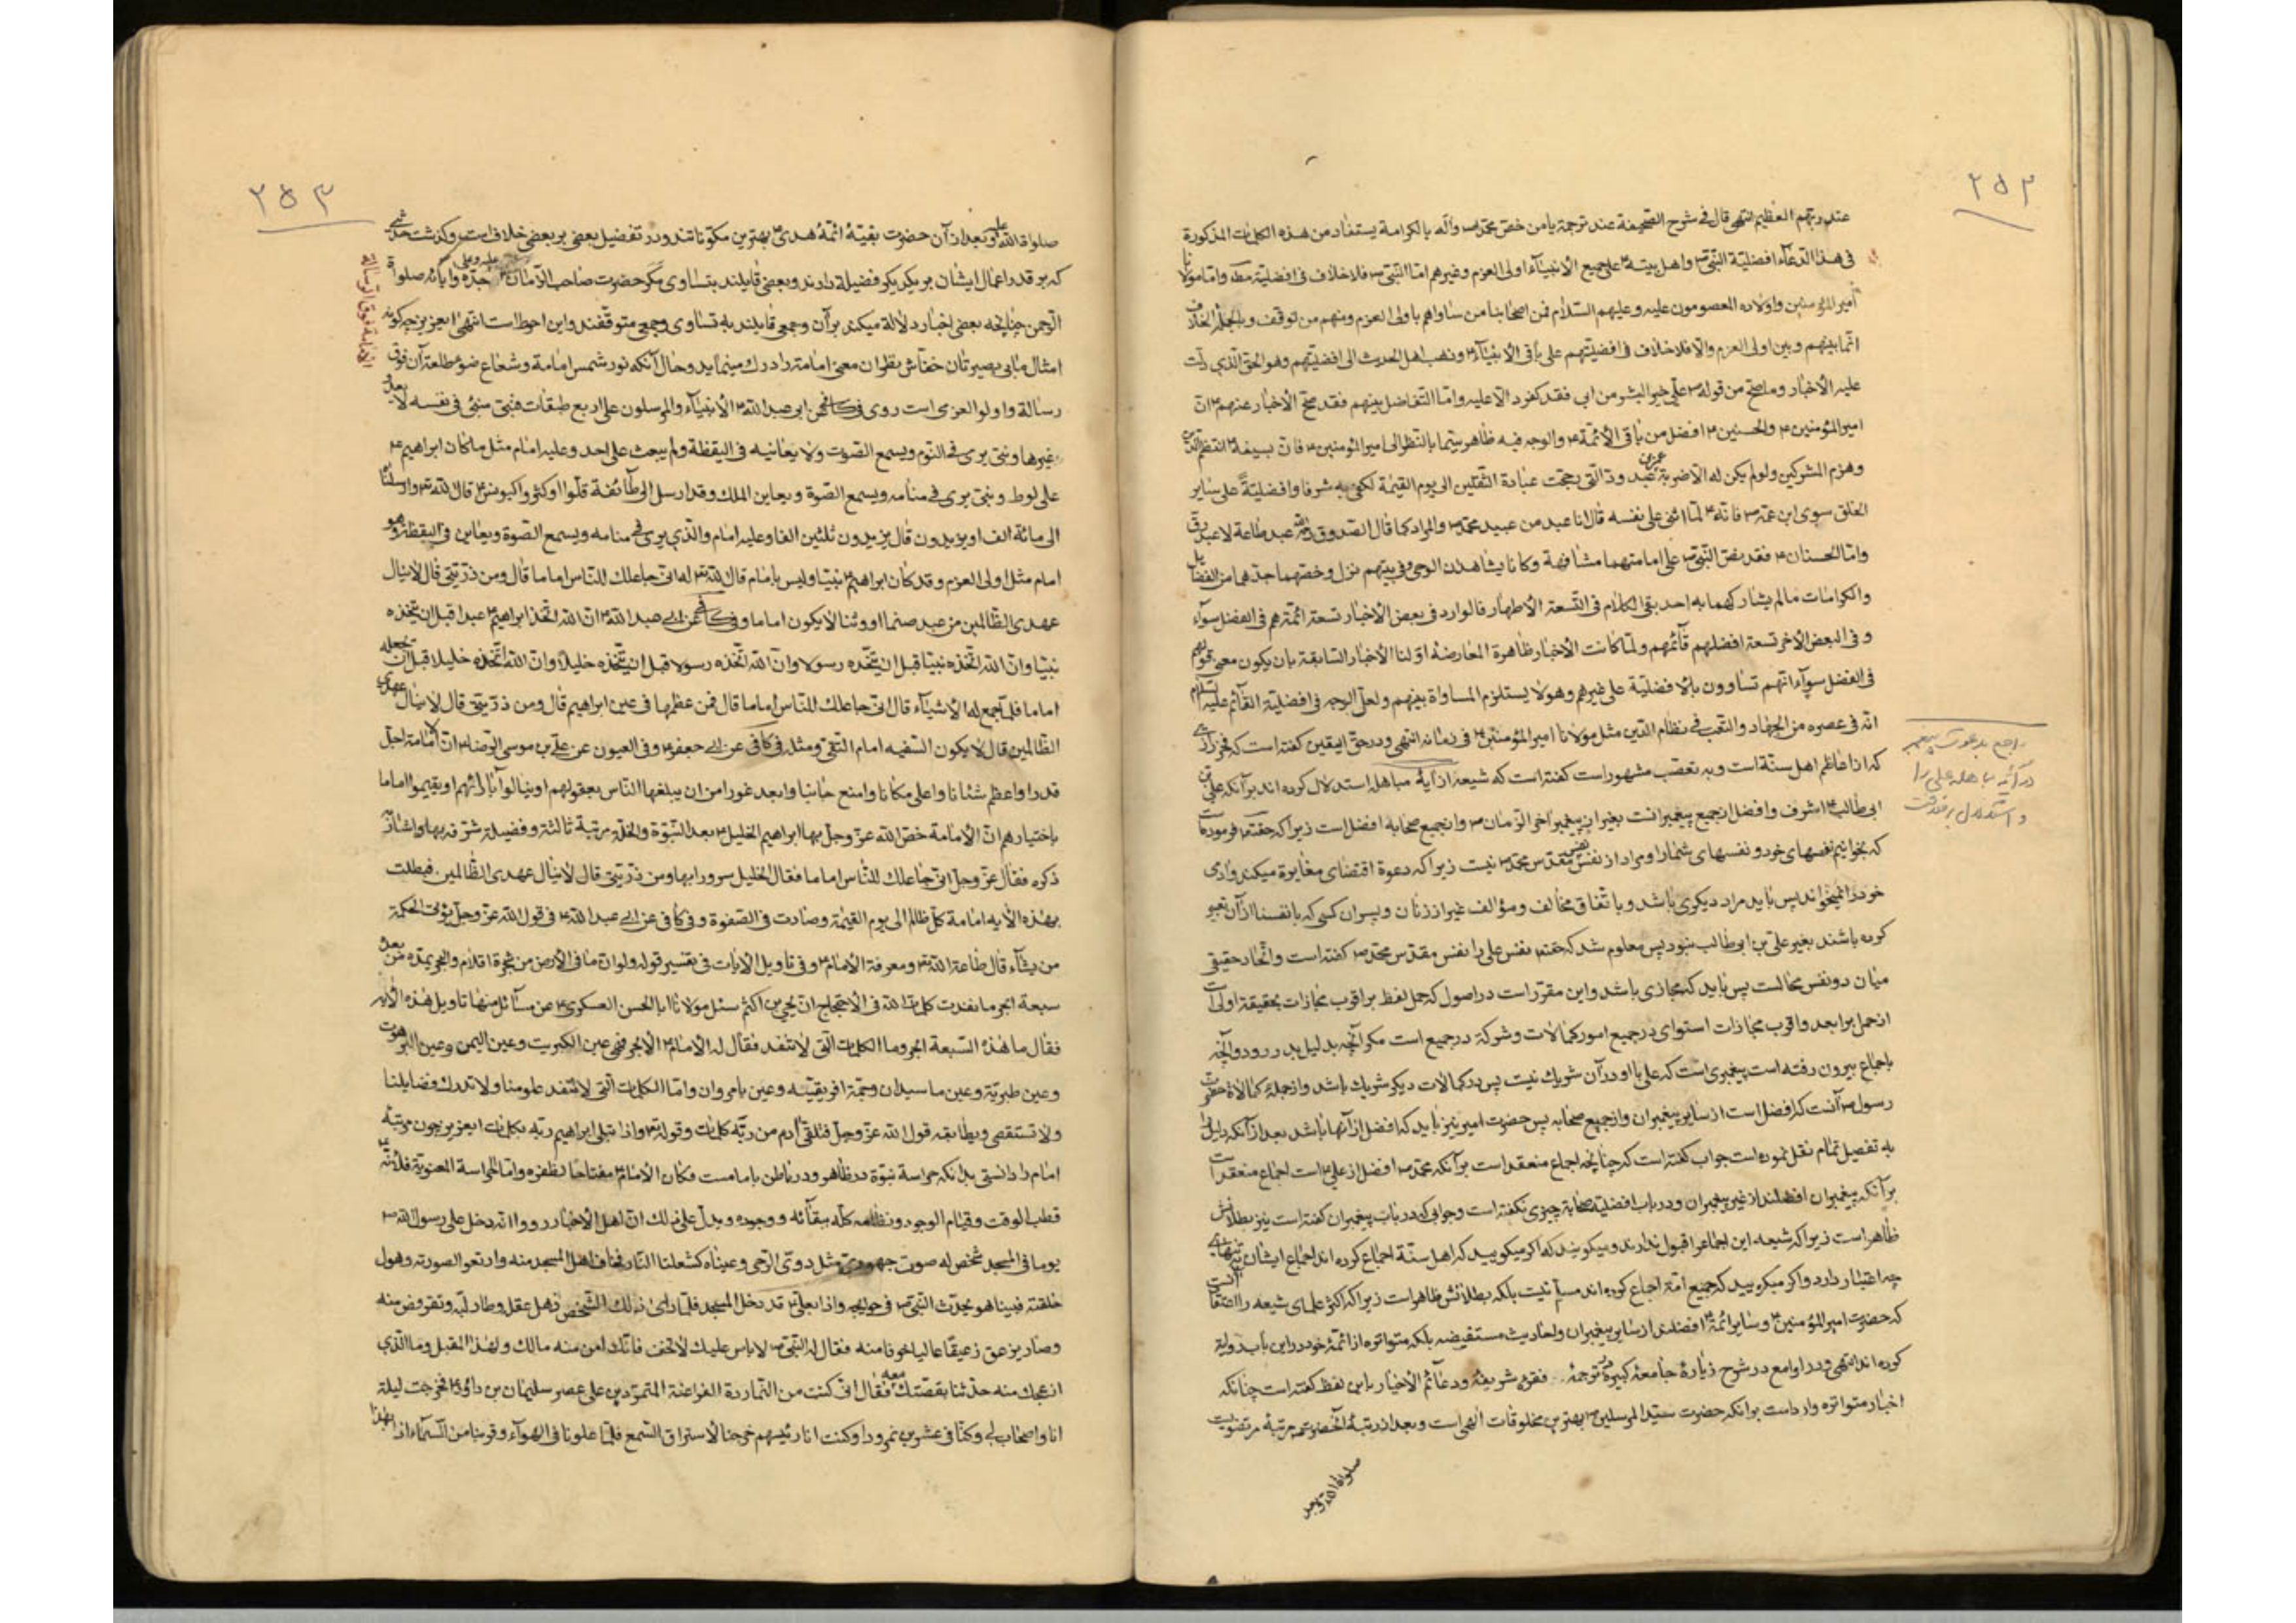 ۲۵۳
عند ربهم العظیم انتهی قال فی شرح الصحیفة عند ترجمة یا من خص محمدا ص وآله بالکرامة یستفاد من هذه الکلمات المذکورة
فی هذا الدعاء افضلیة النبی ص واهل بیته ع علی جمیع الانبیاء اولی العزم وغیرهم اما النبی ص فلا خلاف فی افضلیته مط واما مولانا
امیر المؤمنین واولاده المعصومون علیه وعلیهم السلام فمن اصحابنا من ساواهم باولی العزم ومنهم من توقف وبالجملة الخلاف
انما بینهم وبین اولی العزم والا فلا خلاف فی افضلیتهم علی باقی الانبیاء ع وذهب اهل الحدیث الی افضلیتهم وهو الحق الذی دلت
علیه الاخبار وما صح من قوله ص علی خیر البشر من ابی فقد کفر د الا علیه واما التفاضل بینهم فقد صح الاخبار عنهم ع ان
امیر المؤمنین ع والحسنین ع افضل من باقی الائمة ع والوجه فیه ظاهر سیما بالنظر الی امیر المؤمنین ع فان بسیفه ع انتظم الدین
وهزم المشرکین ولو لم یکن له الا ضربة عمرو بن عبد ود التی رجحت عبادة الثقلین الی یوم القیمة لکفی به شرفا وافضلیة علی سایر
الخلق سوی ابن عمه ص فانه ع لما اثنی علی نفسه قال انا عبد من عبید محمد ص والمراد کما قال الصدوق ره عبد طاعة لا عبد رق
واما الحسنان ع فقد نص النبی ص علی امامتهما مشافهة وکانا یشاهدان الوحی وفی بیتهم نزل وخصهما جدهما من الفضایل
والکرامات ما لم یشارکهما به احد بقی الکلام فی التسعة الاطهار فالوارد فی بعض الاخبار تسعة ائمة هم فی الفضل سواء
و فی البعض الاخر تسعة افضلهم قائمهم ولما کانت الاخبار ظاهرة المعارضة اولنا الاخبار السابقة بان یکون معنی قولهم
فی الفضل سواء انهم تساوون بالافضلیة علی غیرهم وهو لا یستلزم المساواة بینهم ولعل الوجه فی افضلیة القائم علیه السلام
انه فی عصره من الجهاد والتعب فی نظام الدین مثل مولانا امیر المؤمنین ع فی زمانه انتهی ودر حق الیقین کفته است که فخر رازی
که از اعاظم اهل سنة است و به تعصب مشهور است کفته است که شیعه از آیة مباهله استدلال کرده اند بر آنکه علی بن
ابی طالب ع اشرف وافضل از جمیع پیغمبرانست بغیر از پیغمبر آخر الزمان ص واز جمیع صحابه افضل است زیرا که حقتعالی فرموده
که بخوانیم نفسهای خود و نفسهای شما را ومراد از نفس نفس مقدس محمد ص نیست زیرا که دعوة اقتضای مغایرة میکند وآدمی
خود را نمیخواند پس باید مراد دیکری باشد وباتفاق مخالف ومؤالف غیر از زنان وپسران کسی که بانفسنا از آن تعبیر
کرده باشند بغیر علی بن ابی طالب نبود پس معلوم شد که حقتعالی نفس علی را نفس مقدس محمد ص کفته است واتحاد حقیقی
میان دو نفس محالست پس باید که مجازی باشد واین مقرر است در اصول که حمل لفظ بر اقرب مجازات بحقیقة اولی است
از حمل بر ابعد واقرب مجازات استوای در جمیع امور کمالات وشرکة در جمیع است مکر آنچه بدلیل بدر رود وآنچه
باجماع بیرون رفته است پیغمبری است که علی با او در آن شریک نیست پس در کمالات دیکر شریک باشد واز جملة کمالات حضرت
رسول ص آنست که افضل است از سایر پیغمبران واز جمیع صحابه پس حضرت امیر نیز باید که افضل از آنها باشد بعد از آنکه دلیل را
به تفصیل تمام نقل نموده است جواب کفته است که چنانچه اجماع منعقد است بر آنکه محمد ص افضل از علی ع است اجماع منعقد است
بر آنکه پیغمبران افضلند از غیر پیغمبران ودر باب افضلیة صحابة چیزی نکفته است وجوابی که در باب پیغمبران کفته است نیز بطلانش
ظاهر است زیرا که شیعه این اجماع را قبول ندارند ومیکویند که اکر میکویید که اهل سنة اجماع کرده اند اجماع ایشان بتنهایی
چه اعتبار دارد واکر میکویید که جمیع امة اجماع کرده اند مسلم نیست بلکه بطلانش ظاهر است زیرا که اکثر علمای شیعه را اعتقاد آنست
که حضرت امیر المؤمنین ع وسایر ائمة ع افضلند از سایر پیغمبران واحادیث مستفیضه بلکه متواتره از ائمة خود در این باب روایة
کرده اند انتهی ودر لوامع در شرح زیارة جامعة کبیرة در ترجمة فقرة شریفة ودعائم الاخیار باین لفظ کفته است چنانکه
اخبار متواتره وارد است بر آنکه حضرت سید المرسلین ص بهترین مخلوقات الهی است وبعد از رتبة آنحضرت ص مرتبة مرتضویست
صلواة الله وبعد
راجع بدعوت پیغمبر
در آیه مباهله علی را
و استدلال بر فوقت
۲۵۴
صلواة الله علیه وبعد از آن حضرت بقیة ائمة هدی ع بهترین مکونات‌اند ودر تفضیل بعضی بر بعضی خلاف است وکذشت حدیثی
که بر قدر اعمال ایشان بر یکدیکر فضیلة دارند وبعضی قایلند بتساوی مکر حضرت صاحب الزمان علیه وعلی جده وآبائه صلواة
الرحمن چنانچه بعضی اخبار دلالة میکند بر آن وجمعی قایلند به تساوی وجمعی متوقفند واین احوط است انتهی ای عزیز چکونه
امثال ما بی بصیرتان خفاش نظران معنی امامة را درک مینماید وحال آنکه نور شمس امامة وشعاع ضوء طلعة آن فوق
رسالة واولو العزمی است روی فی کا عن ابی عبد الله ع الانبیاء والمرسلون علی اربع طبقات فنبی منبئ فی نفسه لا یعدو
غیرها ونبی یری فی النوم ویسمع الصوت ولا یعاینه فی الیقظة ولم یبعث علی احد وعلیه امام مثل ما کان ابراهیم ع
علی لوط ونبی یری فی منامه ویسمع الصوة ویعاین الملک وقد ارسل الی طائفة قلوا او کثروا کیونس ع قال الله تع وارسلنا
الی مائة الف او یزیدون قال یزیدون ثلثین الفا وعلیه امام والذی یری فی منامه ویسمع الصوة ویعاین فی الیقظة وهو
امام مثل اولی العزم وقد کان ابراهیم ع نبیا ولیس بامام قال الله تع له انی جاعلک للناس اماما قال ومن ذریتی قال لا ینال
عهدی الظالمین من عبد صنما او وثنا لا یکون اماما وفی کا عن ابی عبد الله ع ان الله اتخذ ابراهیم ع عبدا قبل ان یتخذه
نبیا وان الله اتخذه نبیا قبل ان یتخذه رسولا وان الله اتخذه رسولا قبل ان یتخذه خلیلا وان الله اتخذه خلیلا قبل ان یجعله
اماما فلما جمع له الاشیاء قال انی جاعلک للناس اماما قال فمن عظمها فی عین ابراهیم قال ومن ذریتی قال لا ینال عهدی
الظالمین قال لا یکون السفیه امام التقی ومثله فی کافی عن ابی جعفر ع وفی العیون عن علی بن موسی الرضا ع ان الامامة اجل
قدرا واعظم شئانا واعلی مکانا وامنع جانبا وابعد غورا من ان یبلغها الناس بعقولهم او ینالوا بآرائهم او یقیموا اماما
باختیارهم ان الامامة خص الله عز وجل بها ابراهیم الخلیل ع بعد النبوة والخلة مرتبة ثالثة وفضیلة شرفه بها واشاد
ذکره فقال عز وجل انی جاعلک للناس اماما فقال الخلیل سرورا بها ومن ذریتی قال لا ینال عهدی الظالمین فبطلت
بهذه الایه امامة کل ظالم الی یوم القیمة وصارت فی الصفوة وفی کافی عن ابی عبد الله ع فی قول الله عز وجل یؤتی الحکمة
من یشاء قال طاعة الله تع ومعرفة الامام ع وفی تاویل الایات فی تفسیر قوله ولو ان ما فی الارض من شجرة اقلام والبحر یمده من بعده
سبعة ابحر ما نفدت کلمات الله فی الاحتجاج ان یحیی بن اکثم سئل مولانا ابا الحسن العسکری ع عن مسائل منها تاویل هذه الایه
فقال ما هذه السبعة ابحر وما الکلمات التی لا تنفد فقال له الامام ع الابحر فهی عین الکبریت وعین الیمن وعین البرهوت
وعین طبریة وعین ماسیدان وحمة افریقیه وعین باهروان واما الکلمات التی لا تنفد علومنا ولا تدرک فضایلنا
ولا تستقصی ویطابقه قول الله عز وجل فتلقی آدم من ربه کلمات وقوله تع واذ ابتلی ابراهیم ربه بکلمات ای عزیز چون مرتبة
امام را دانستی بدانکه حراسة نبوة در ظاهر ودر باطن بامامست فکان الامام ع مفتاحا بظفره واما الحراسة المعنویة فلانه
قطب الوقت وقیام الوجود ونظامه کله ببقائه ووجوده ویدل علی ذلک ان اهل الاخبار رووا انه دخل علی رسول الله ص
یوما فی المسجد شخص له صوت جهوری مثل دوی الرحی وعیناه کشعلنا النار فخاف اهل المسجد منه وارتعوا لصورته وهول
خلقته فبینا هو یحدث النبی ص فی حوایجه واذا بعلی ع قد دخل المسجد فلما رای ذلک الشخص ذهل عقله وطار لبه وتقروض منه
وصار یزعق زعیقا عالیا خوفا منه فقال له النبی ص لا باس علیک لا تخف فانک امن منه مالک ولهذا المقبل وما الذی
ازعجک منه حدثنا بقصتک معه فقال انی کنت من النماردة الفراعنة المتمردین علی عصر سلیمان بن داؤد ع فخرجت لیلة
انا واصحاب لی وکنا فی عشرین نمرودا وکنت انا رئیسهم خرجنا لاستراق السمع فلما علونا فی الهوآء وقربنا من السماء اذا بهذا
الامامة فوق الرسالة